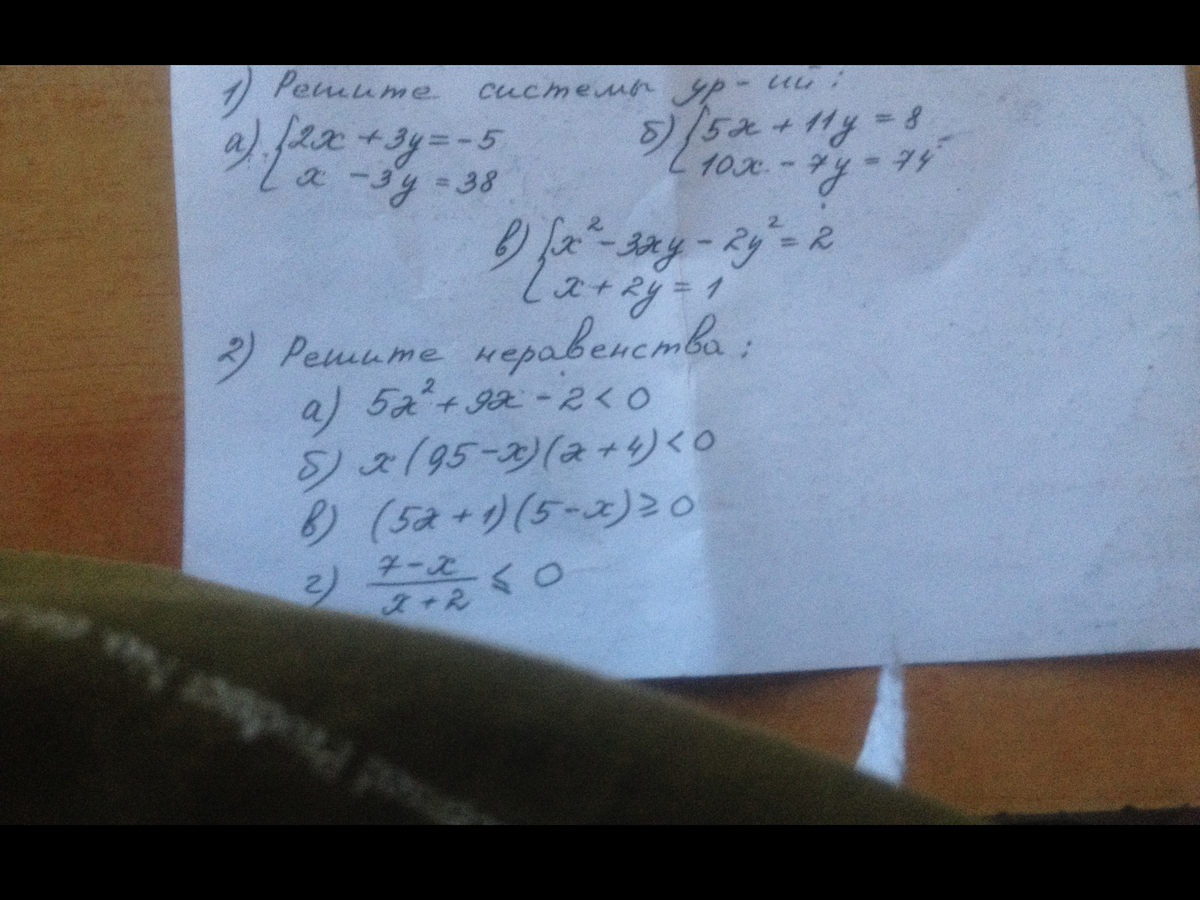 1) Решите системы ур-ий:
а) {2x + 3y = -5
x - 3y = 38
б) {5x + 11y = 8
10x - 7y = 74
в) {x² - 3xy - 2y² = 2
x + 2y = 1
2) Решите неравенства:
а) 5x² + 9x - 2 < 0
б) x(0,5 - x)(x + 4) < 0
в) (5x + 1)(5 - x) ≥ 0
г) 7 - x / x + 2 ≤ 0